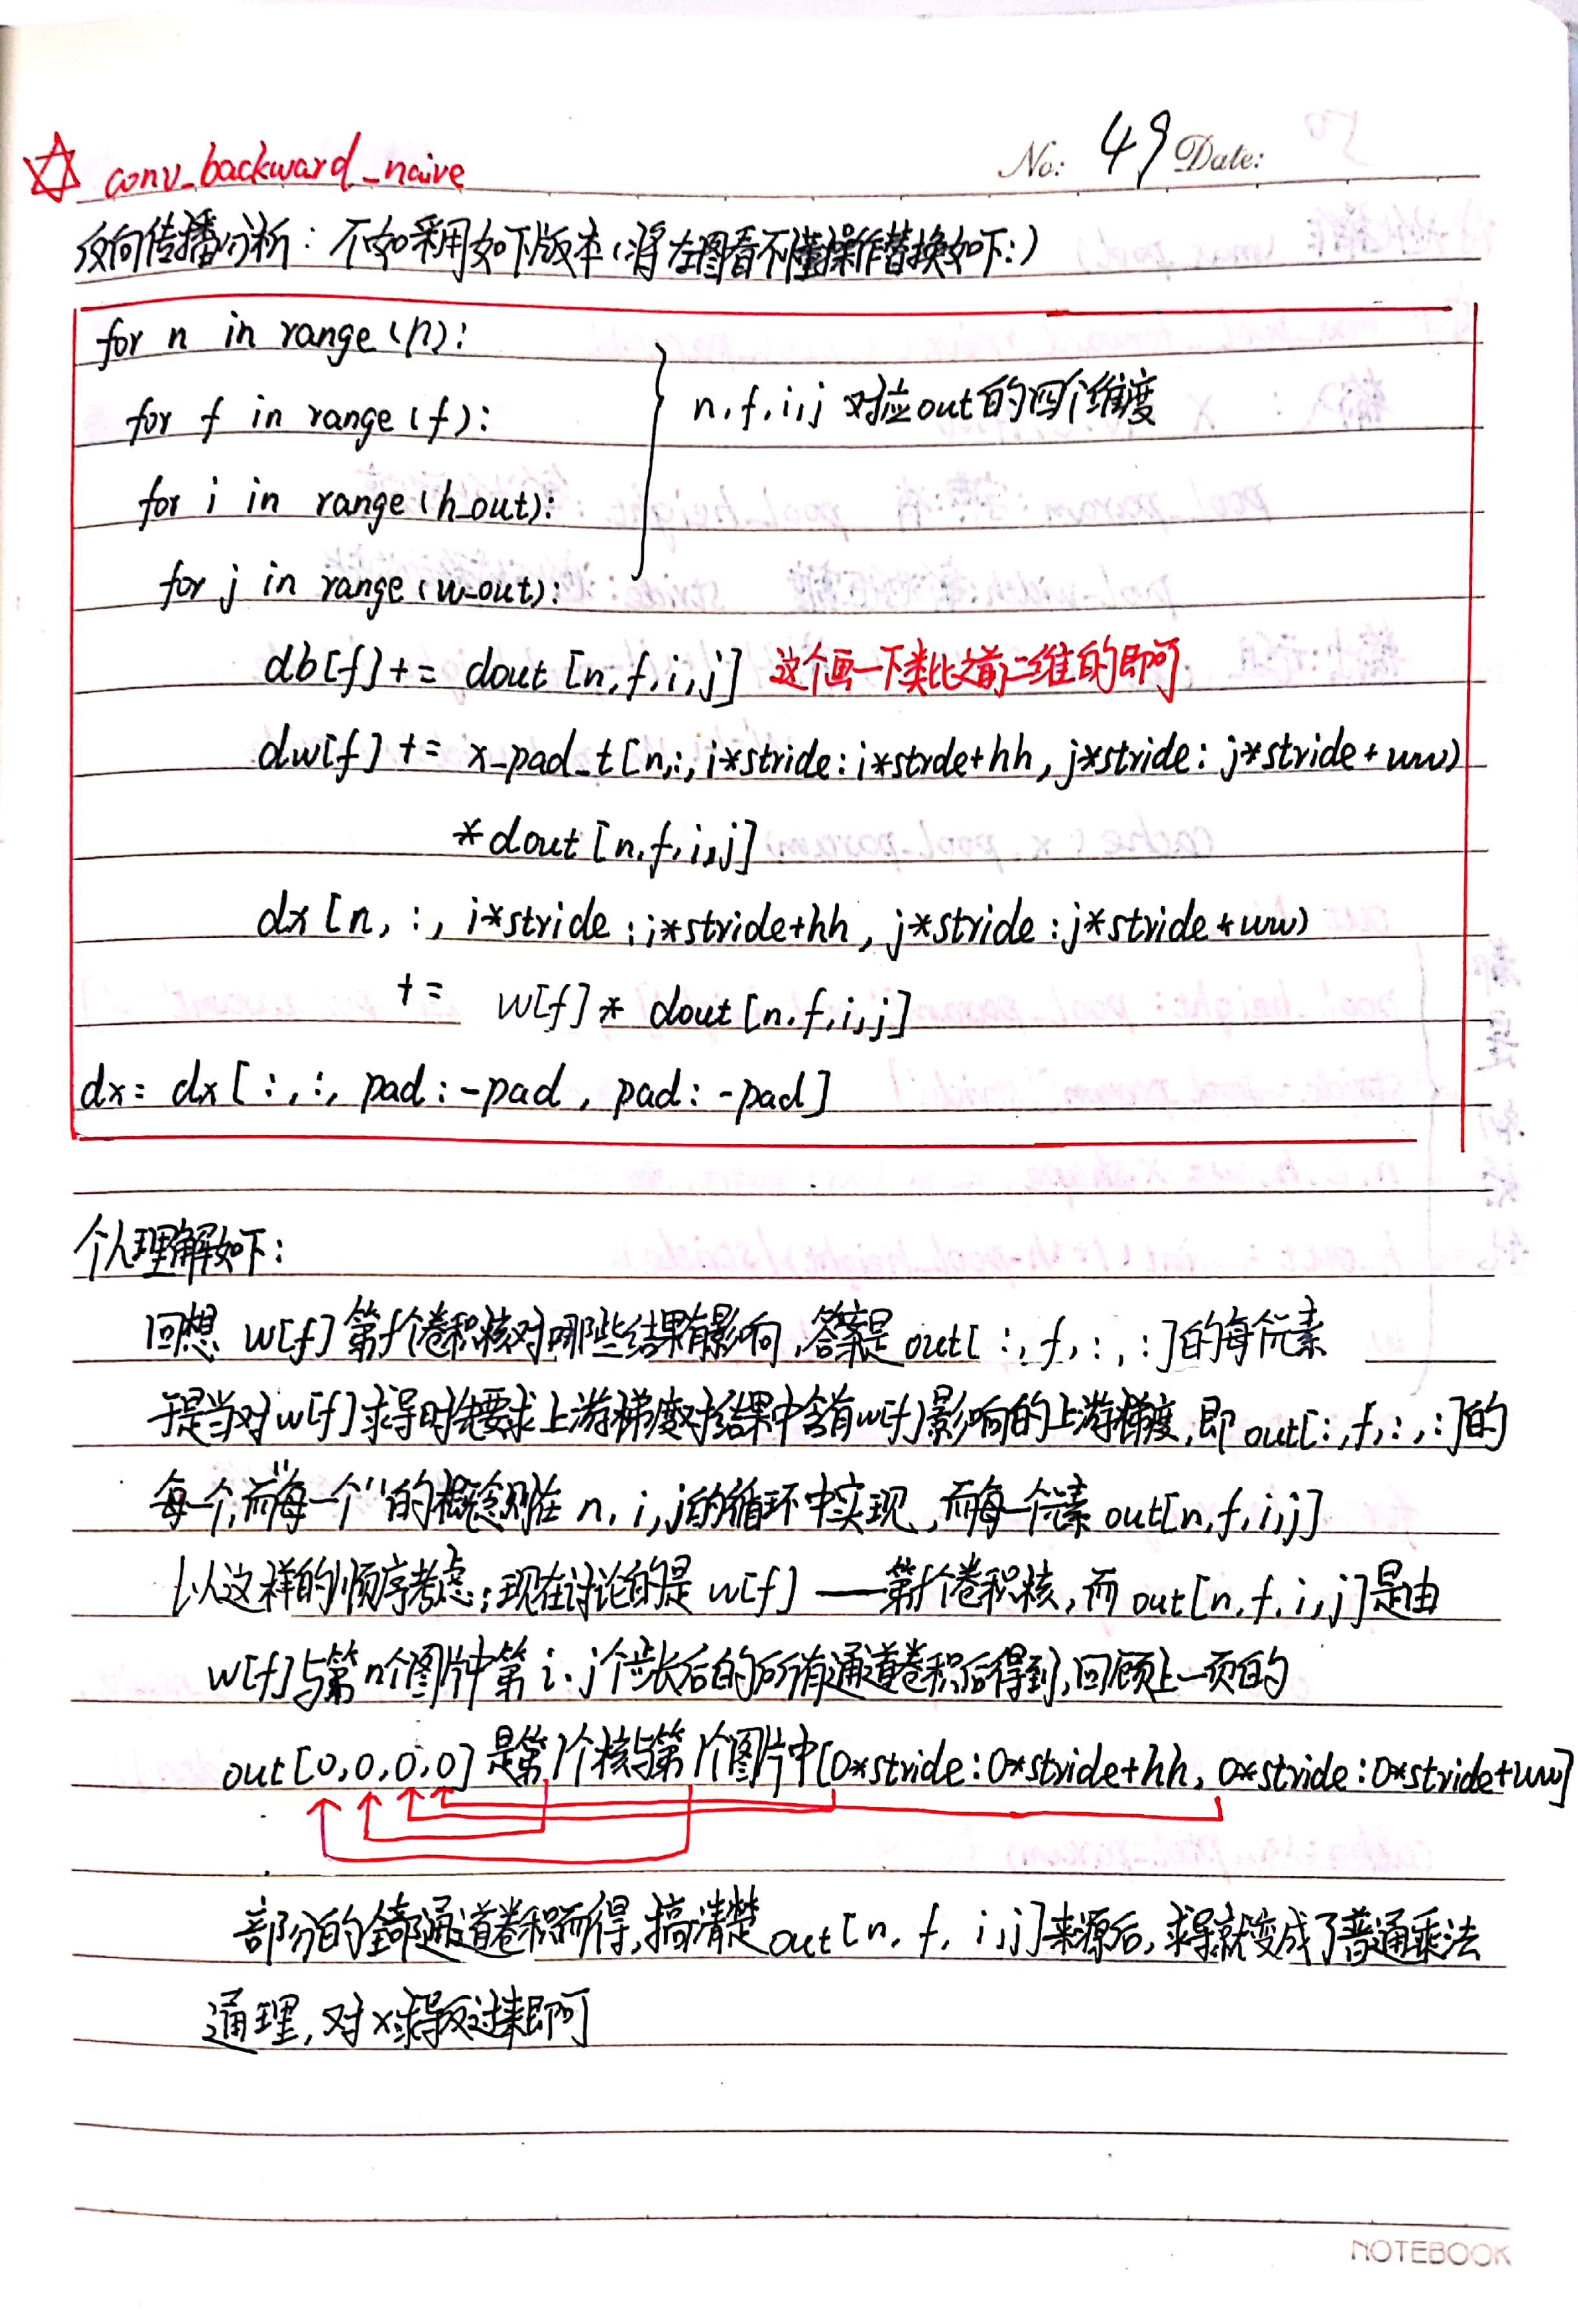 conv_backward_naive
No: 49 Date:
反向传播分析：不如采用如下版本(将左图看不懂操作替换如下:)
for n in range(n):
for f in range(f):
n,f,i,j 对应out的四个维度
for i in range(h_out):
for j in range(w_out):
db[f] += dout[n,f,i,j] 这个画一下类比之前二维的即可
dw[f] += x_pad_t[n,:,i*stride:i*strde+hh, j*stride:j*stride+ww)
*dout[n,f,i,j]
dx[n, :, i*stride:i*stride+hh, j*stride:j*stride+ww)
+= w[f]* dout[n,f,i,j]
dx= dx[:,:, pad:-pad, pad:-pad]
个人理解如下:
回想 w[f] 第f个卷积核对哪些结果有影响,答案是out[:,f,:,:]的每个元素
于是当对w[f]求导时先要求上游梯度对结果中含有w[f]影响的上游梯度,即out[:,f,:,:]的
每一个,而"每一个"的概念则在n,i,j的循环中实现,而每个元素out[n,f,i,j]
以这样的顺序考虑:现在讨论的是w[f]——第f个卷积核,而out[n,f,i,j]是由
w[f]与第n个图片中第i、j个步长后的所有通道卷积后得到,回顾上一页的
out[0,0,0,0]是第1个核与第1个图片中[0*stride:0*stride+hh, 0*stride:0*stride+ww]
部分的全部通道卷积而得,搞清楚out[n,f,i,j]来源后,求导就变成了普通乘法
通理,对x求导反过来即可
NOTEBOOK